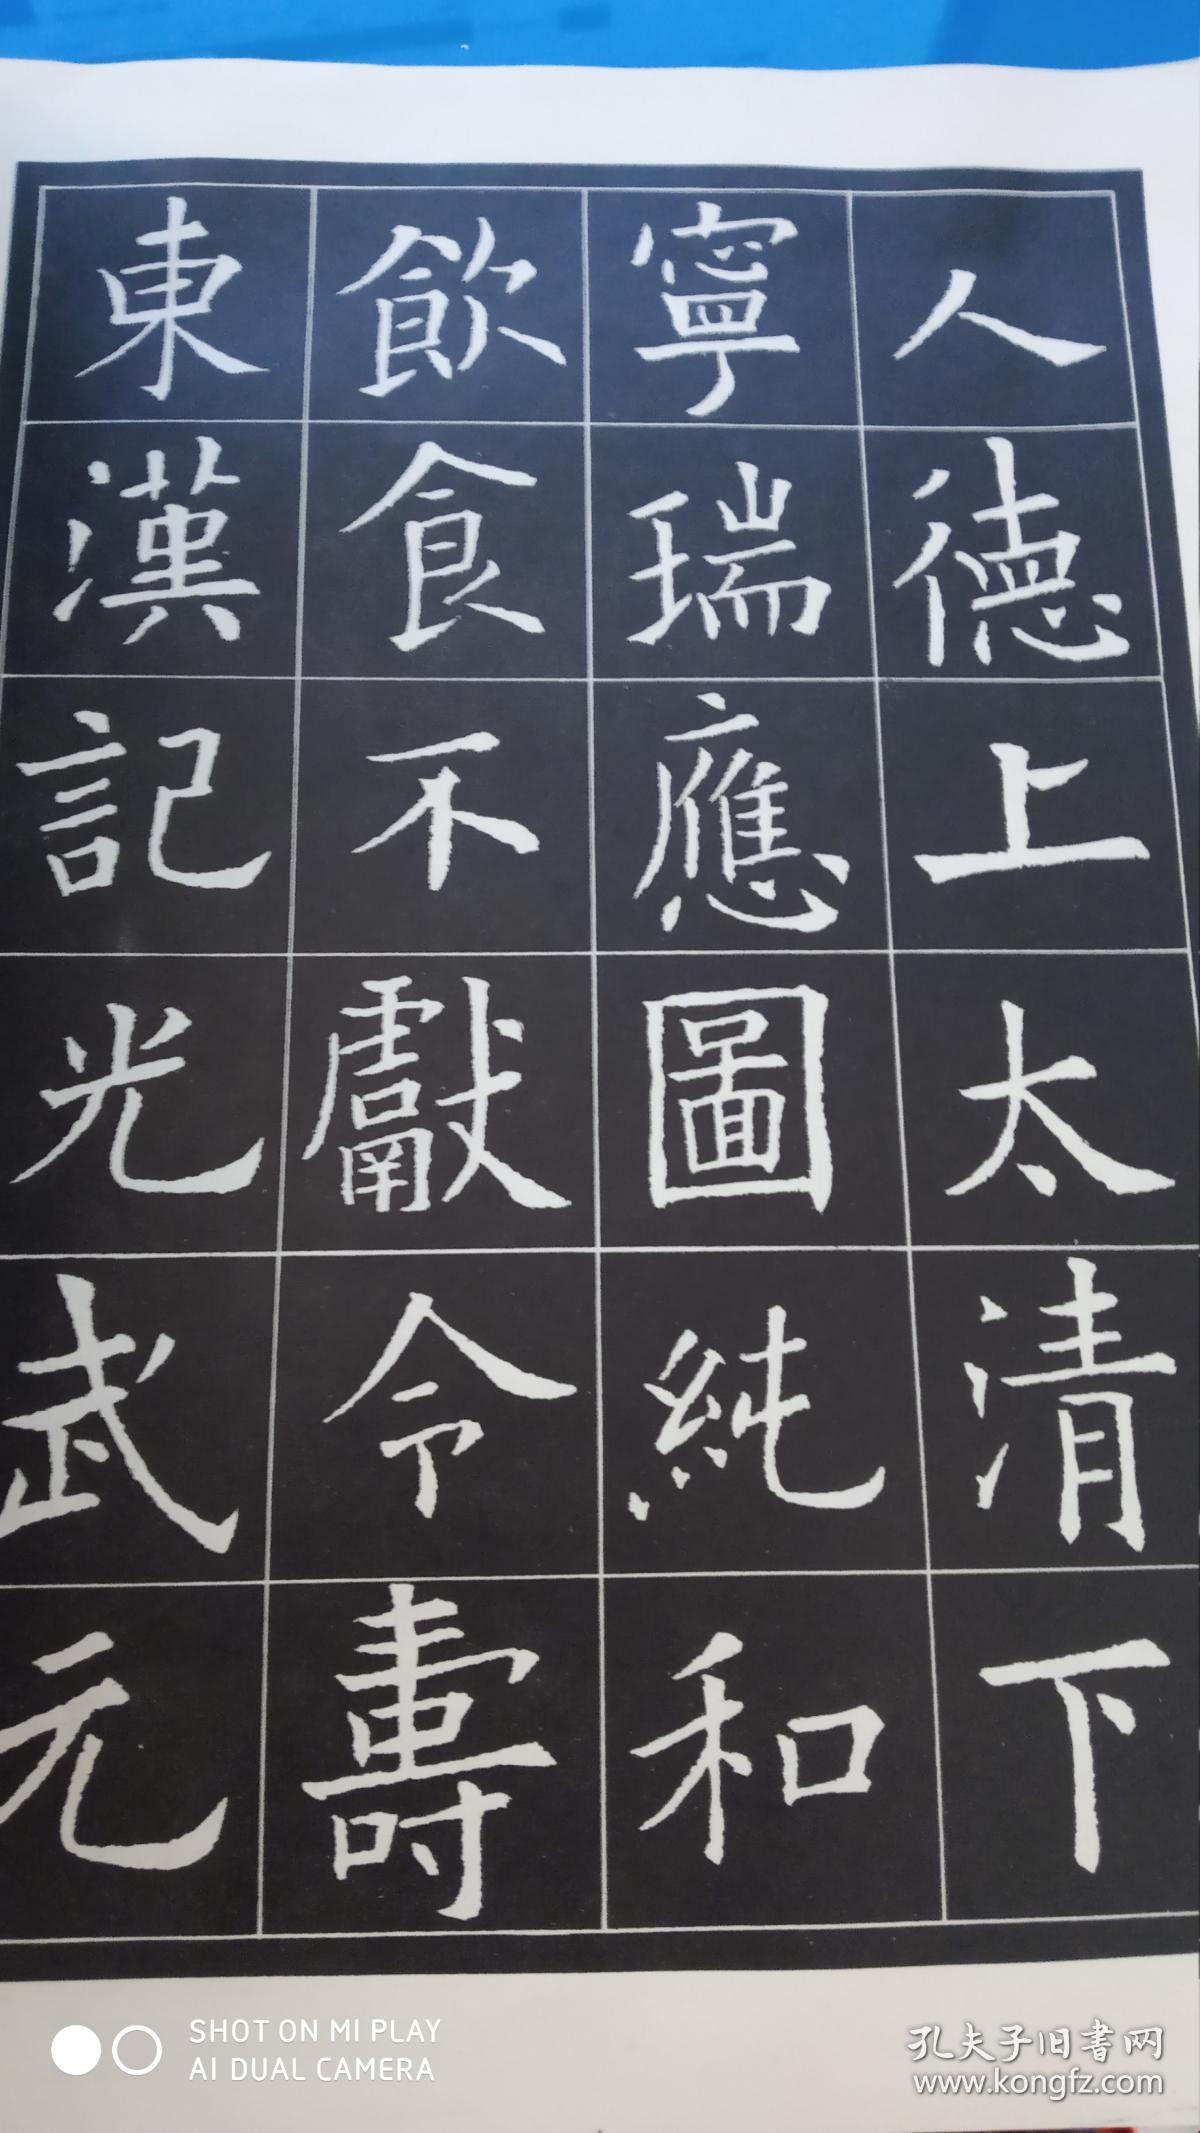 人德上太清下
寧瑞應圖純和
飲食不獻令壽
東漢記光武元
SHOT ON MI PLAY
AI DUAL CAMERA
孔夫子旧書网
www.kongfz.com